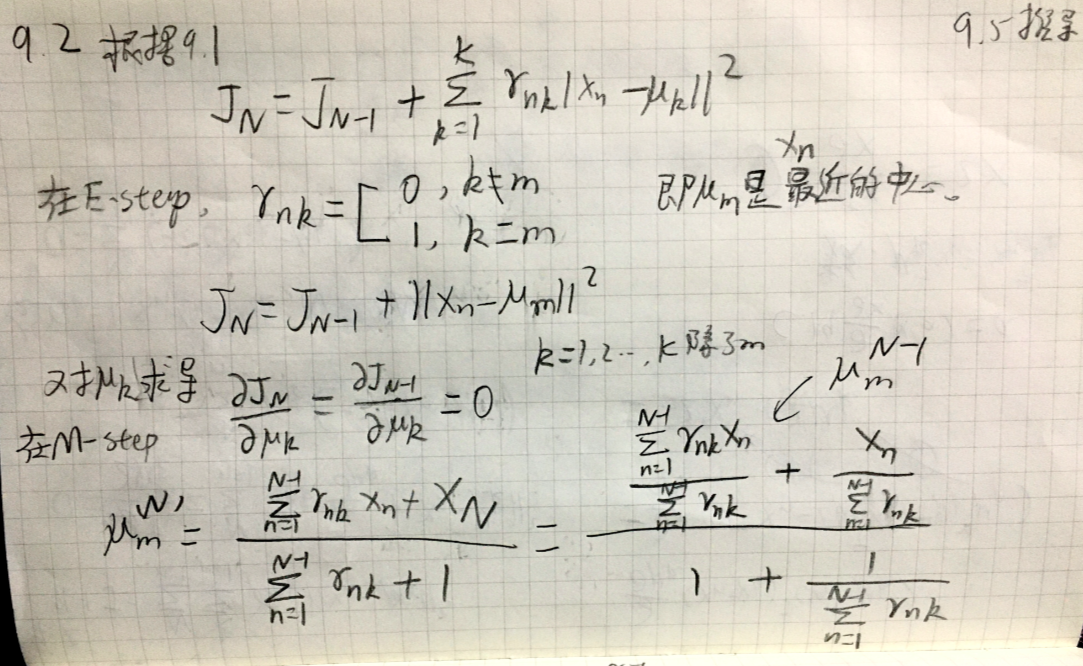 9.2 根据9.1
9.5推导
J_N = J_{N-1} + \sum_{k=1}^{K} r_{nk} |x_n - μ_k||^2
在E-step, r_{nk} = [ 0, k≠m
1, k=m
即μ_m是x_n最近的中心。
J_N = J_{N-1} + ||x_n - μ_m||^2
k=1,2…,K 除了m
对μ_k求导 \frac{∂J_N}{∂μ_k} = \frac{∂J_{N-1}}{∂μ_k} = 0
在M-step
μ_m^{N'} = \frac{\sum_{n=1}^{N-1} r_{nk} x_n + x_N}{\sum_{n=1}^{N-1} r_{nk} + 1} = \frac{\frac{\sum_{n=1}^{N-1} r_{nk} x_n}{\sum_{n=1}^{N-1} r_{nk}} + \frac{x_n}{\sum_{n=1}^{N-1} r_{nk}}}{1 + \frac{1}{\sum_{n=1}^{N-1} r_{nk}}}
↙ μ_m^{N-1}